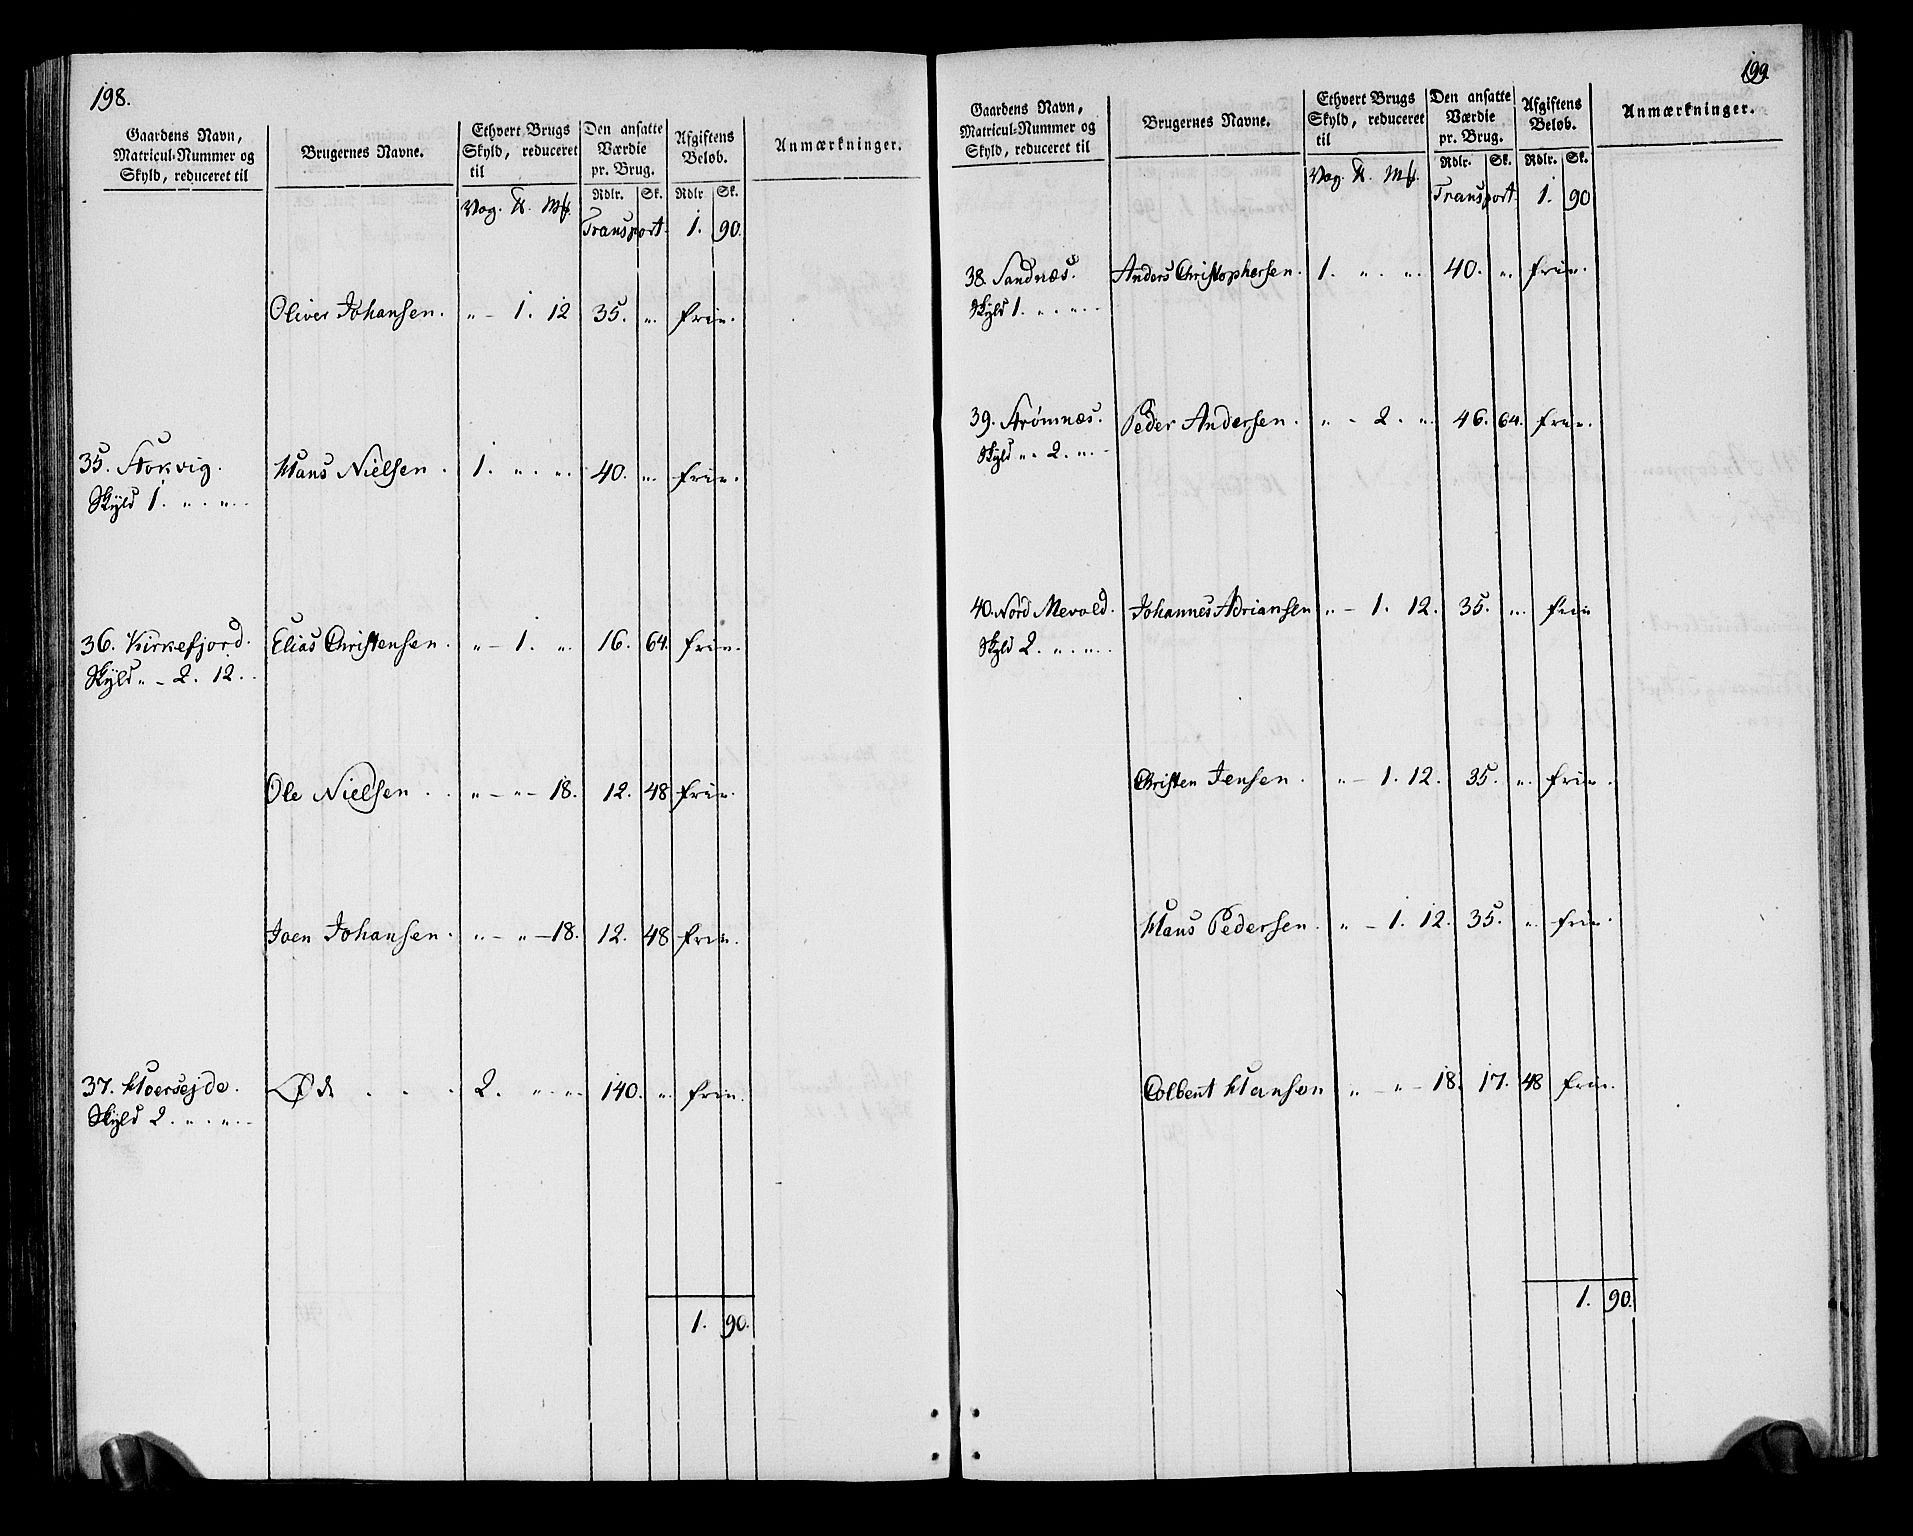 198.
Gaardens Navn, Matricul-Nummer og Skyld, reduceret til
Brugernes Navne.
Ethvert Brugs Skyld, reduceret til
Den ansatte Værdie pr. Brug.
Afgiftens Beløb.
Anmærkninger.
Rdlr. Sk. Rdlr Sk.
Vog. Mk.
Transport. 1. 90.
Oliver Johansen. „ - 1. 12 35. „ frie.
35. Stokvig. Hans Nielsen. 1. „ „ 40. „ frie.
Skyld 1. „ . „ . .
36. Kirkefjord. Elias Christensen. „ - 1. „ 16. 64. frie.
Skyld „ - 2. 12. .
Ole Nielsen . . „ - „ - 18. 12. 48 frie.
Joen Johansen. „ - „ - 18. 12. 48 frie.
37. Hoersejde. Øde . . . 2. „ „ 140. „ frie.
Skyld 2. „ . „ . .
1. 90.
199
Gaardens Navn, Matricul-Nummer og Skyld, reduceret til
Brugernes Navne.
Ethvert Brugs Skyld, reduceret til
Den ansatte Værdie pr. Brug.
Afgiftens Beløb.
Anmærkninger.
Rdlr. Sk. Rdlr. Sk.
Vog. Mk.
Transport. 1. 90
38. Sandnæs. Anders Christophersen. 1. „ „ 40. „ frie.
Skyld 1. „ . „ . .
39. Strømnæs. Peder Andersen. „ - 2. „ 46. 64. frie.
Skyld „ 2. „ . -
40. Nord Mevold. Johannes Adriansen „ - 1. 12. 35. „ frie
Skyld 2. „ . „ . .
Christen Jensen. „ - 1. 12. 35. „ frie.
Hans Pedersen. „ - 1. 12. 35. „ frie.
Colbent Hansen „ - „ - 18. 17. 48 frie.
1. 90.